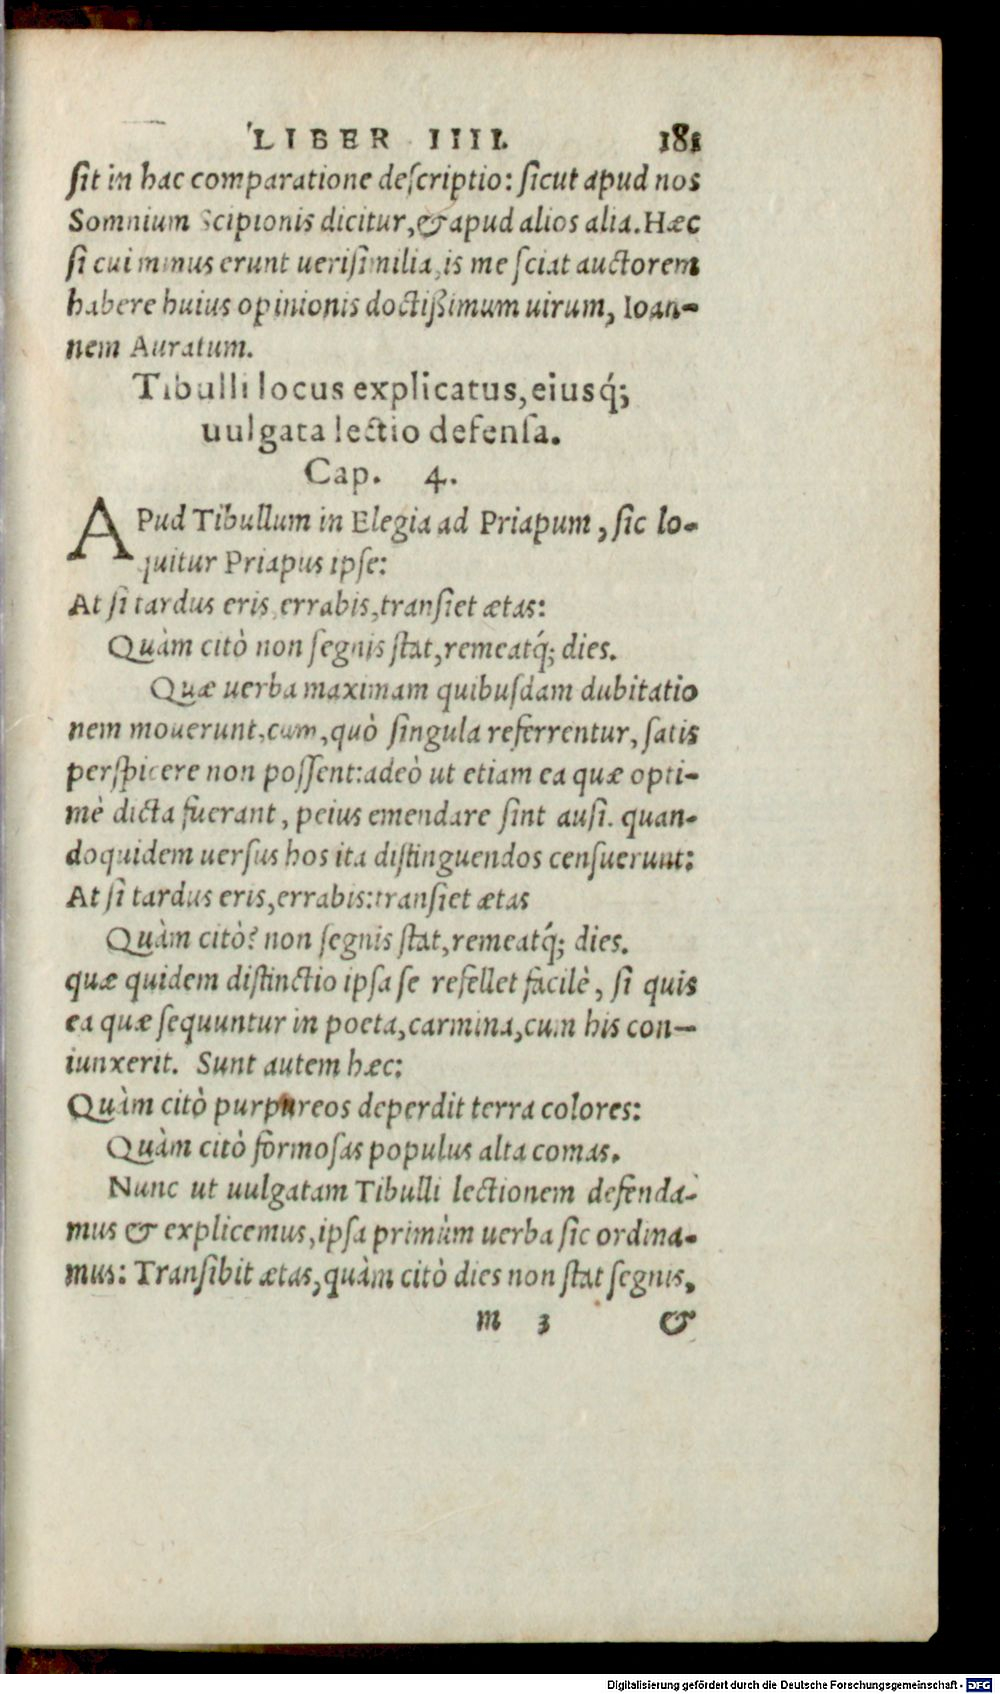 LIBER IIII. 181
ſit in hac comparatione deſcriptio: ſicut apud nos
Somnium Scipionis dicitur, & apud alios alia. Hæc
ſi cui minus erunt ueriſimilia, is me ſciat auctorem
habere huius opinionis doctißimum uirum, Ioan-
nem Auratum.
Tibulli locus explicatus, eiusq́;
uulgata lectio defenſa.
Cap. 4.
APud Tibullum in Elegia ad Priapum, ſic lo-
quitur Priapus ipſe:
At ſi tardus eris, errabis, tranſiet ætas:
Quàm citò non ſegnis ſtat, remeatq́; dies.
Quæ uerba maximam quibuſdam dubitatio
nem mouerunt, cum, quò ſingula referrentur, ſatis
perſpicere non poſſent: adeò ut etiam ea quæ opti-
mè dicta fuerant, peius emendare ſint auſi. quan-
doquidem uerſus hos ita diſtinguendos cenſuerunt:
At ſi tardus eris, errabis: tranſiet ætas
Quàm citò? non ſegnis ſtat, remeatq́; dies.
quæ quidem diſtinctio ipſa ſe refellet facilè, ſi quis
ea quæ ſequuntur in poeta, carmina, cum his con-
iunxerit. Sunt autem hæc:
Quàm citò purpureos deperdit terra colores:
Quàm citò formoſas populus alta comas.
Nunc ut uulgatam Tibulli lectionem defenda-
mus & explicemus, ipſa primùm uerba ſic ordina-
mus: Tranſibit ætas, quàm citò dies non ſtat ſegnis,
m 3 &
Digitalisierung gefördert durch die Deutsche Forschungsgemeinschaft - DFG